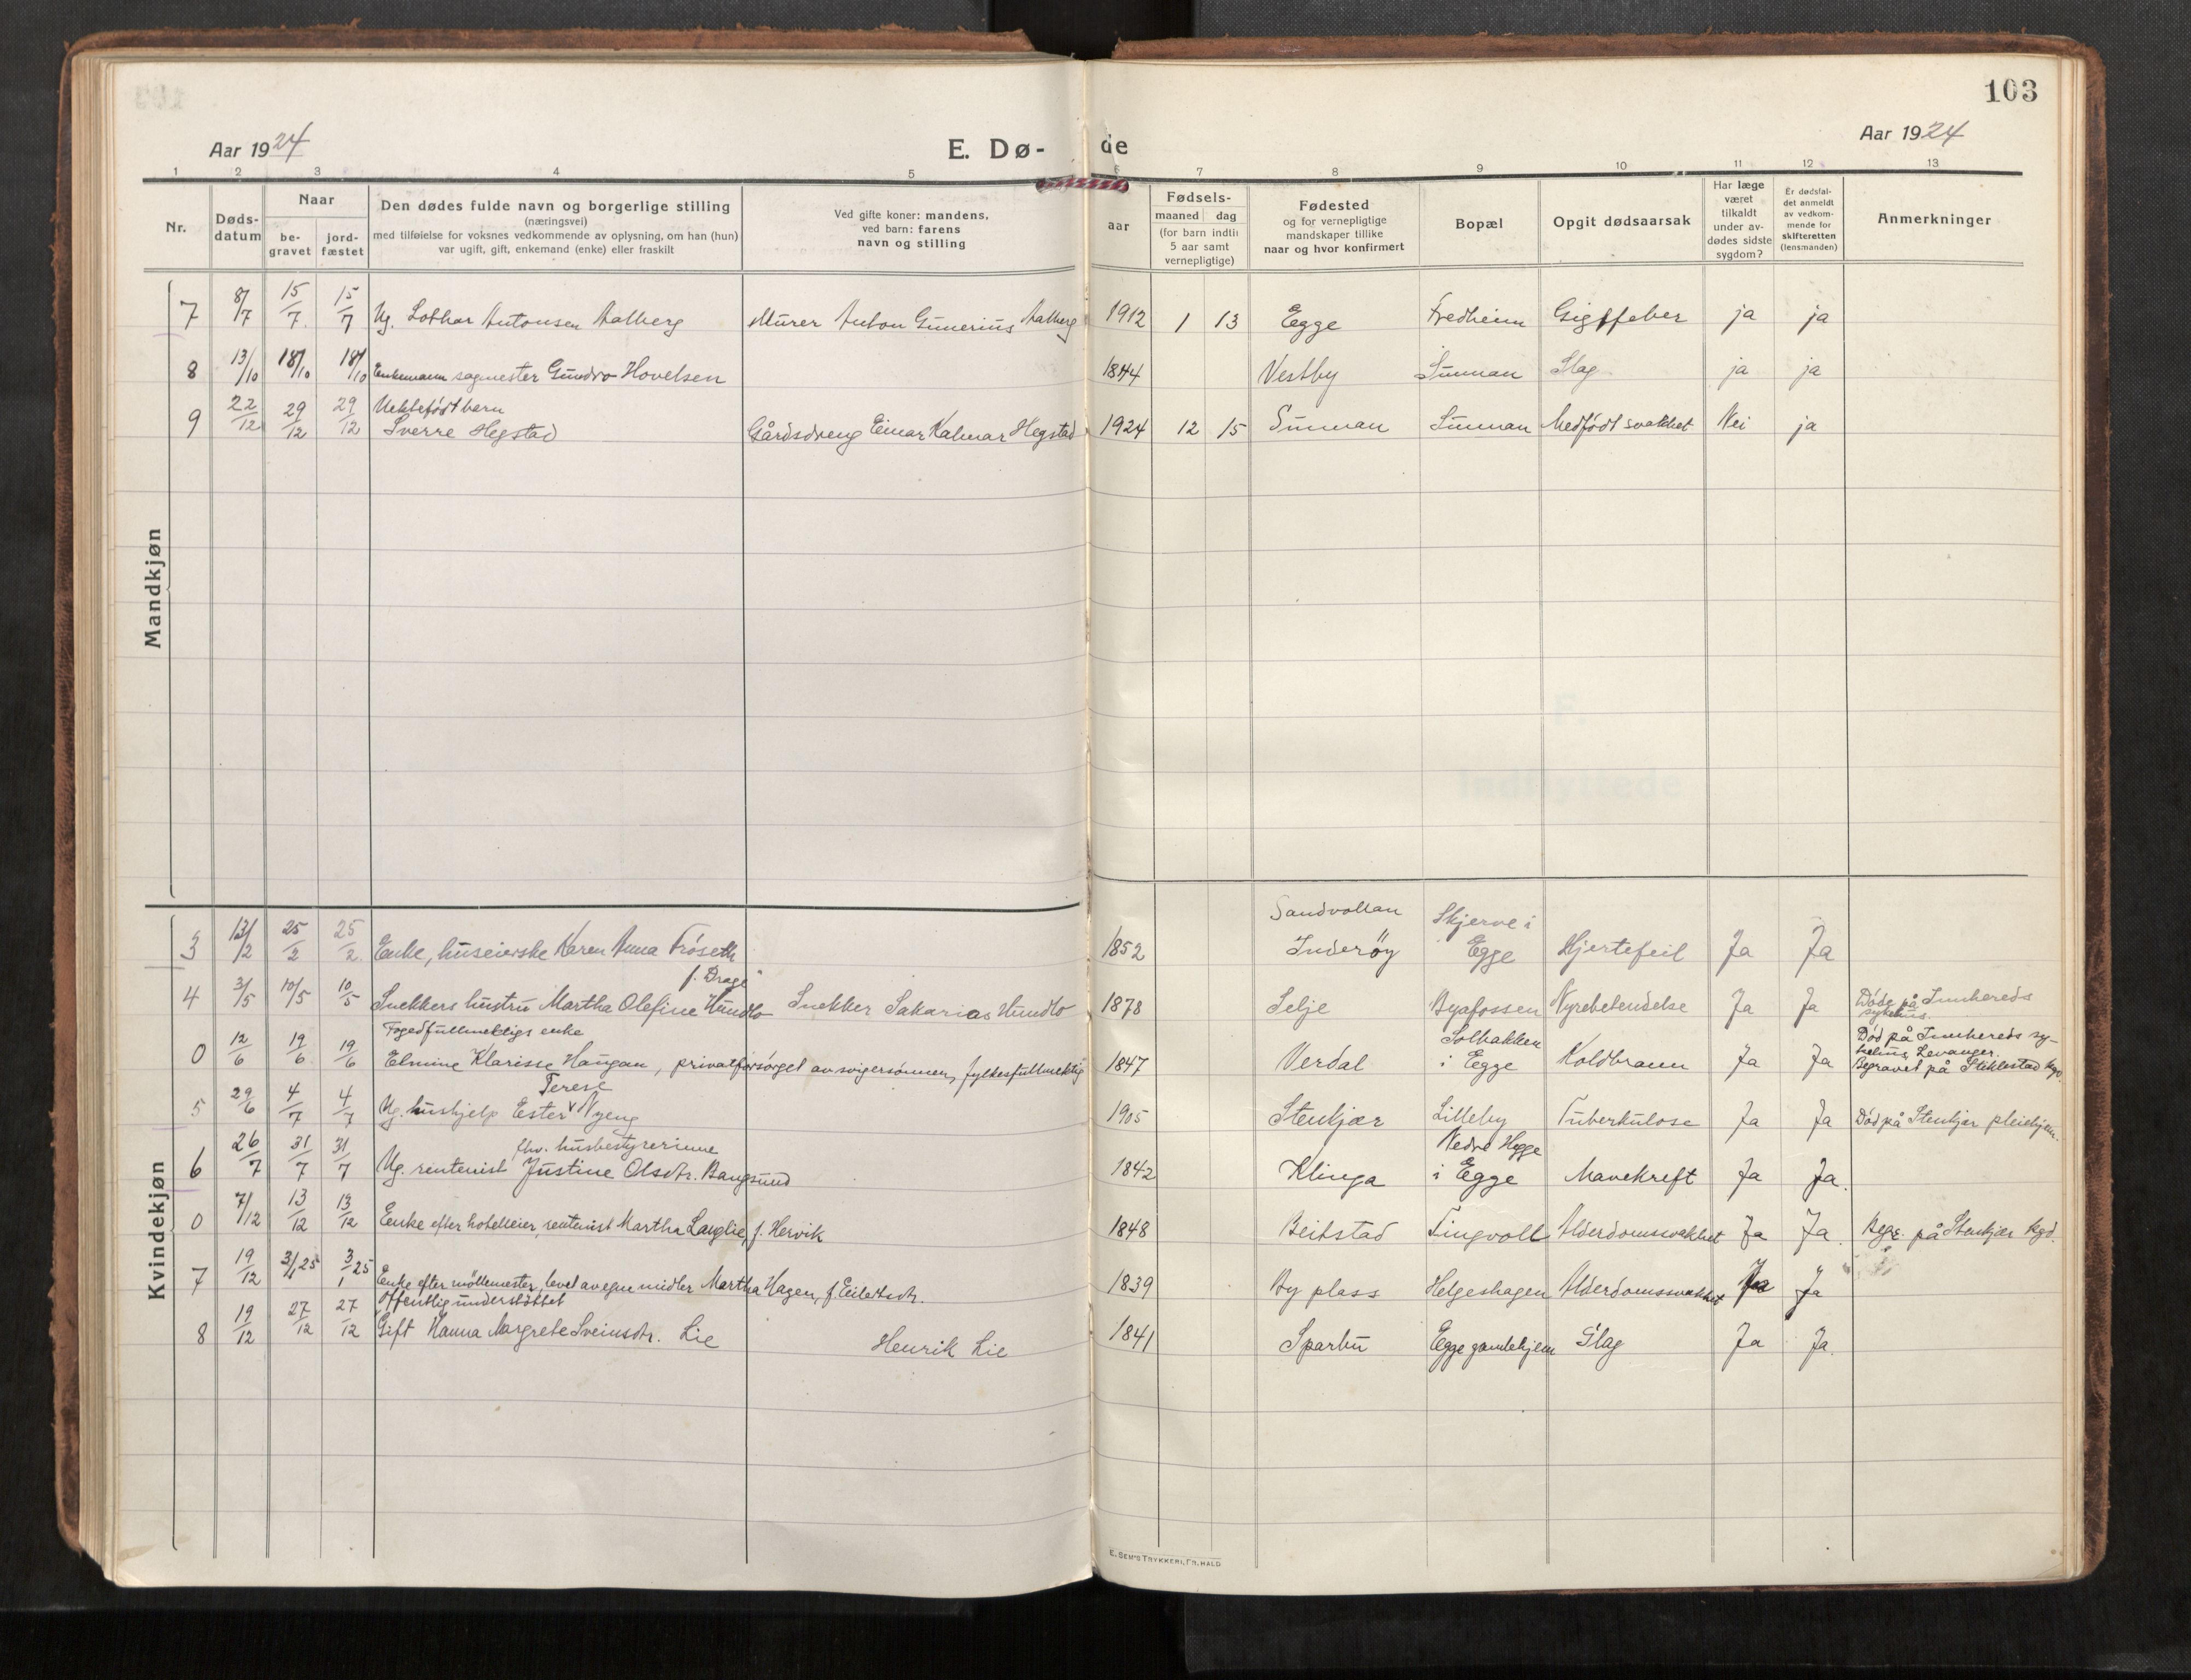 103
Aar 1924
E. Dø- de
Aar 1924
1 2 3 4 5 6 7 8 9 10 11 12 13
Nr.
Døds-
datum
Naar
be-
gravet
jord-
fæstet
Den dødes fulde navn og borgerlige stilling
(næringsvei)
med tilføielse for voksnes vedkommende av oplysning, om han (hun)
var ugift, gift, enkemand (enke) eller fraskilt
Ved gifte koner: mandens,
ved barn: farens
navn og stilling
aar
Fødsels-
maaned dag
(for barn indtil
5 aar samt
vernepligtige)
Fødested
og for vernepligtige
mandskaper tillike
naar og hvor konfirmert
Bopæl
Opgit dødsaarsak
Har læge
været
tilkaldt
under av-
dødes sidste
sygdom?
Er dødsfal-
det anmeldt
av vedkom-
mende for
skifteretten
(lensmanden)
Anmerkninger
Mandkjøn
7 8/7 15/7 15/7 Ug. Lothar Antonsen Aalberg Murer Anton Gunerius Aalberg 1912 1 13 Egge Fredheim Gigtfeber ja ja
8 13/10 18/10 18/10 Enkemann sagmester Gundro Hovelsen 1844 Vestby Sunnan Slag ja ja
9 22/12 29/12 29/12 Uektefødt barn
Sverre Hegstad Gårdsdreng Einar Kalmar Hegstad 1924 12 15 Sunnan Sunnan Medfødt svakhet Nei ja
Kvindekjøn
3 13/2 25/2 25/2 Enke, huseierske Karen Anna Frøseth 1852 Sandvollan
Inderøy Skjerve i
Egge Hjertefeil Ja Ja
f. Drage
4 3/5 10/5 10/5 Snekkers hustru Martha Olefine Hundlo Snekker Sakarias Hundlo 1878 Selje Byafossen Nyrebetendelse Ja Ja Døde på Innhereds
sykehus.
Fogedfullmektigs enke
0 12/6 19/6 19/6 Elmine Klarisse Haugan, privatforsørget av svigersønnen, fylkesfullmektig 1847 Verdal Solbakken
i Egge Koldbrann Ja Ja Død på Innhereds sy-
kehus, Levanger.
Begravet på Stiklestad kgd.
Terese
5 29/6 4/7 4/7 Ug. hushjelp Ester Nyeng 1905 Stenkjær Lilleby Tuberkulose Ja Ja Død på Stenkjær pleiehjem.
fhv. husbestyrerinne
6 26/7 31/7 31/7 Ug. rentenist Justine Olsdtr. Bangsund 1842 Klinga Nedre Hegge
i Egge Mavekreft Ja Ja.
0 7/12 13/12 13/12 Enke efter hotelleier, rentenist Martha Langlie, f. Hervik 1848 Beitstad Tingvoll Alderdomssvakhet Ja Ja. Begr. på Stenkjær kgd.
7 19/12 3/1 25 3/1 25 Enke efter møllemester, levet av egne midler Martha Hagen, f Eilertsdr. 1839 By plass Helgeshagen Alderdomssvakhet Ja Ja
Offentlig understøttet
8 19/12 27/12 27/12 Gift Hanna Margrete Sveinsdtr. Lie Henrik Lie 1841 Sparbu Egge gamlehjem Slag Ja Ja.
E. SEM'S TRYKKERI, FR. HALD